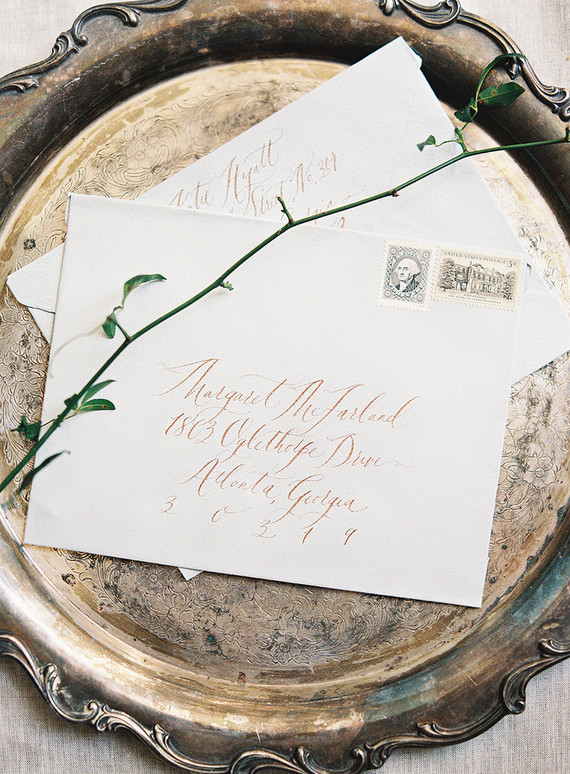 Hyatt
Street No. 201
UNITED STATES POSTAGE 3¢
Margaret McFarland
1803 Oglethorpe Drive
Atlanta, Georgia
3 0 3 1 9